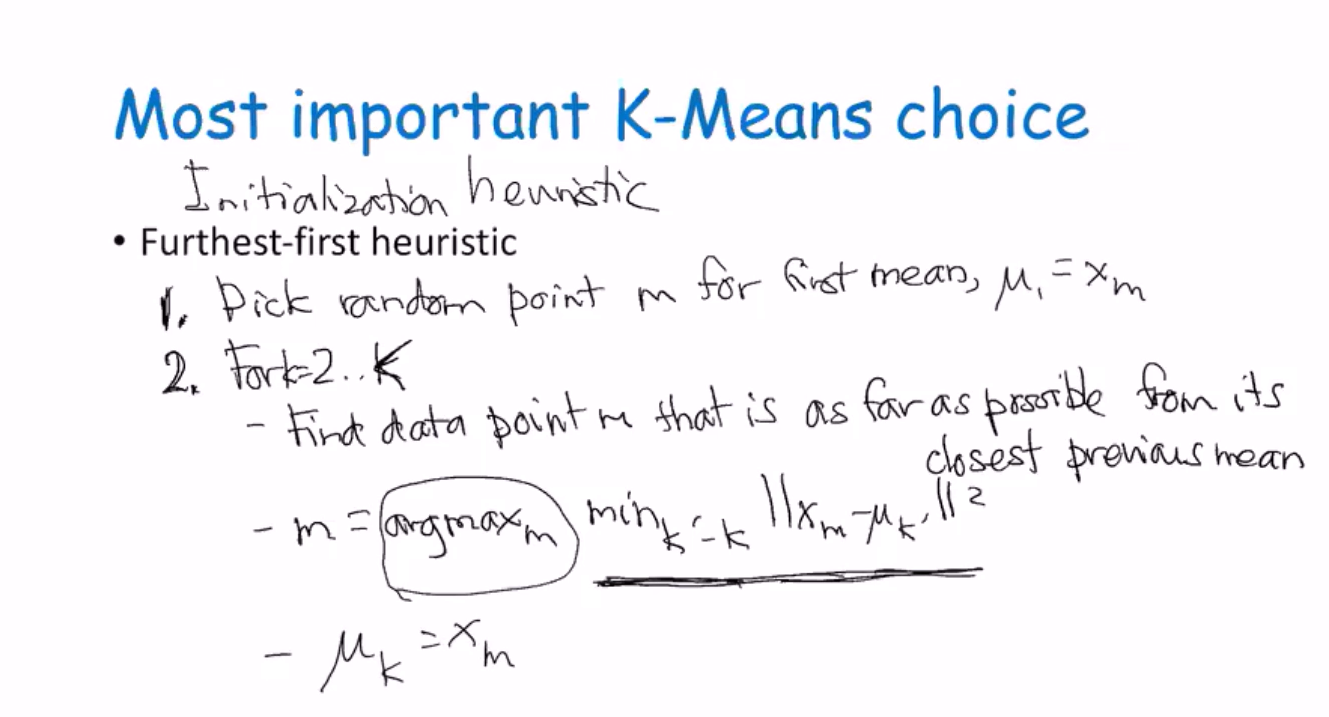 Most important K-Means choice
Initialization heuristic
• Furthest-first heuristic
1. Pick random point m for first mean, μ₁ = xₘ
2. For k=2..K
- Find data point m that is as far as possible from its
closest previous mean
- m = argmaxₘ minₖ'₋ₖ ||xₘ - μₖ'||²
- μₖ = xₘ